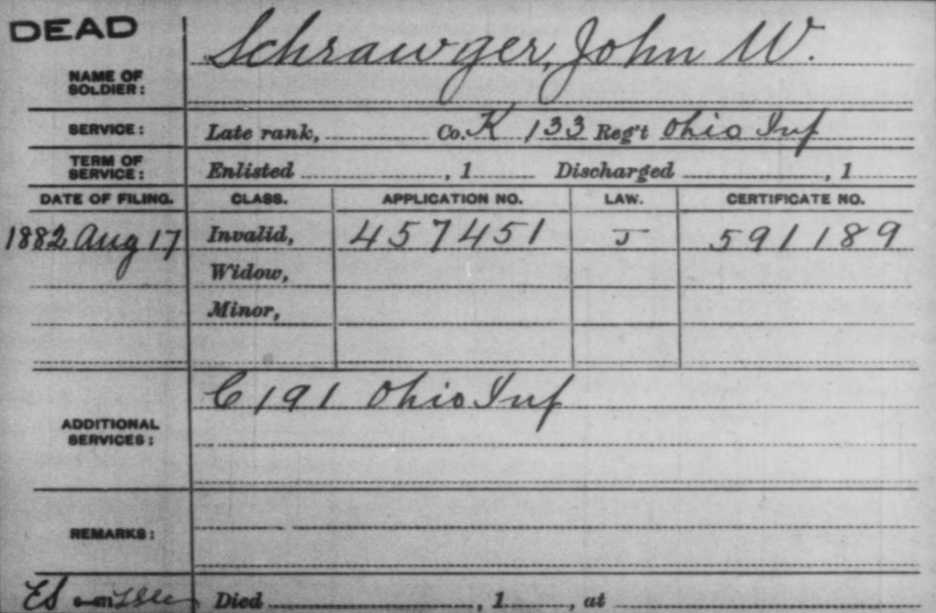 DEAD
NAME OF SOLDIER: Schrawger, John W.
SERVICE: Late rank, Co. K 133 Reg't Ohio Inf
TERM OF SERVICE: Enlisted , 1 Discharged , 1
DATE OF FILING. CLASS. APPLICATION NO. LAW. CERTIFICATE NO.
1882 Aug 17 Invalid, 457451 J 591189
Widow,
Minor,
C 191 Ohio Inf
ADDITIONAL SERVICES:
REMARKS:
Died , 1 , at